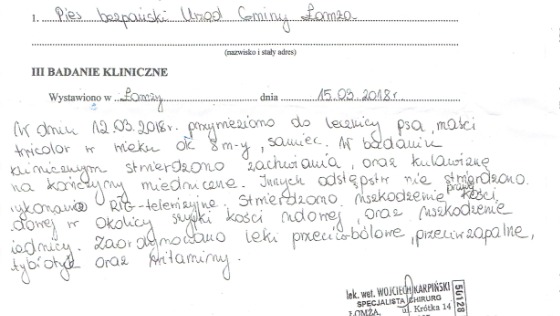 1. Pies bezpański Urząd Gminy Łomża
(nazwisko i stały adres)
III BADANIE KLINICZNE
Wystawiono w Łomży dnia 15.03.2018r
W dniu 12.03.2018r. przywieziono do lecznicy psa, maści
tricolor w wieku ok 8 m-y, samiec. W badaniu
klinicznym stwierdzono zachwiania, oraz kulawiznę
na kończyny miedniczne. Innych odstępstw nie stwierdzono.
wykonano RTG-telewizyjne. Stwierdzono uszkodzenie prawej kości
udowej w okolicy szyjki kości udowej, oraz uszkodzenie
iednicy. Zaordynowano leki przeciwbólowe, przeciwzapalne,
tybiotyk oraz witaminy.
lek. wet. WOJCIECH KARPIŃSKI
SPECJALISTA CHIRURG
ŁOMŻA, ul. Krótka 14
56128